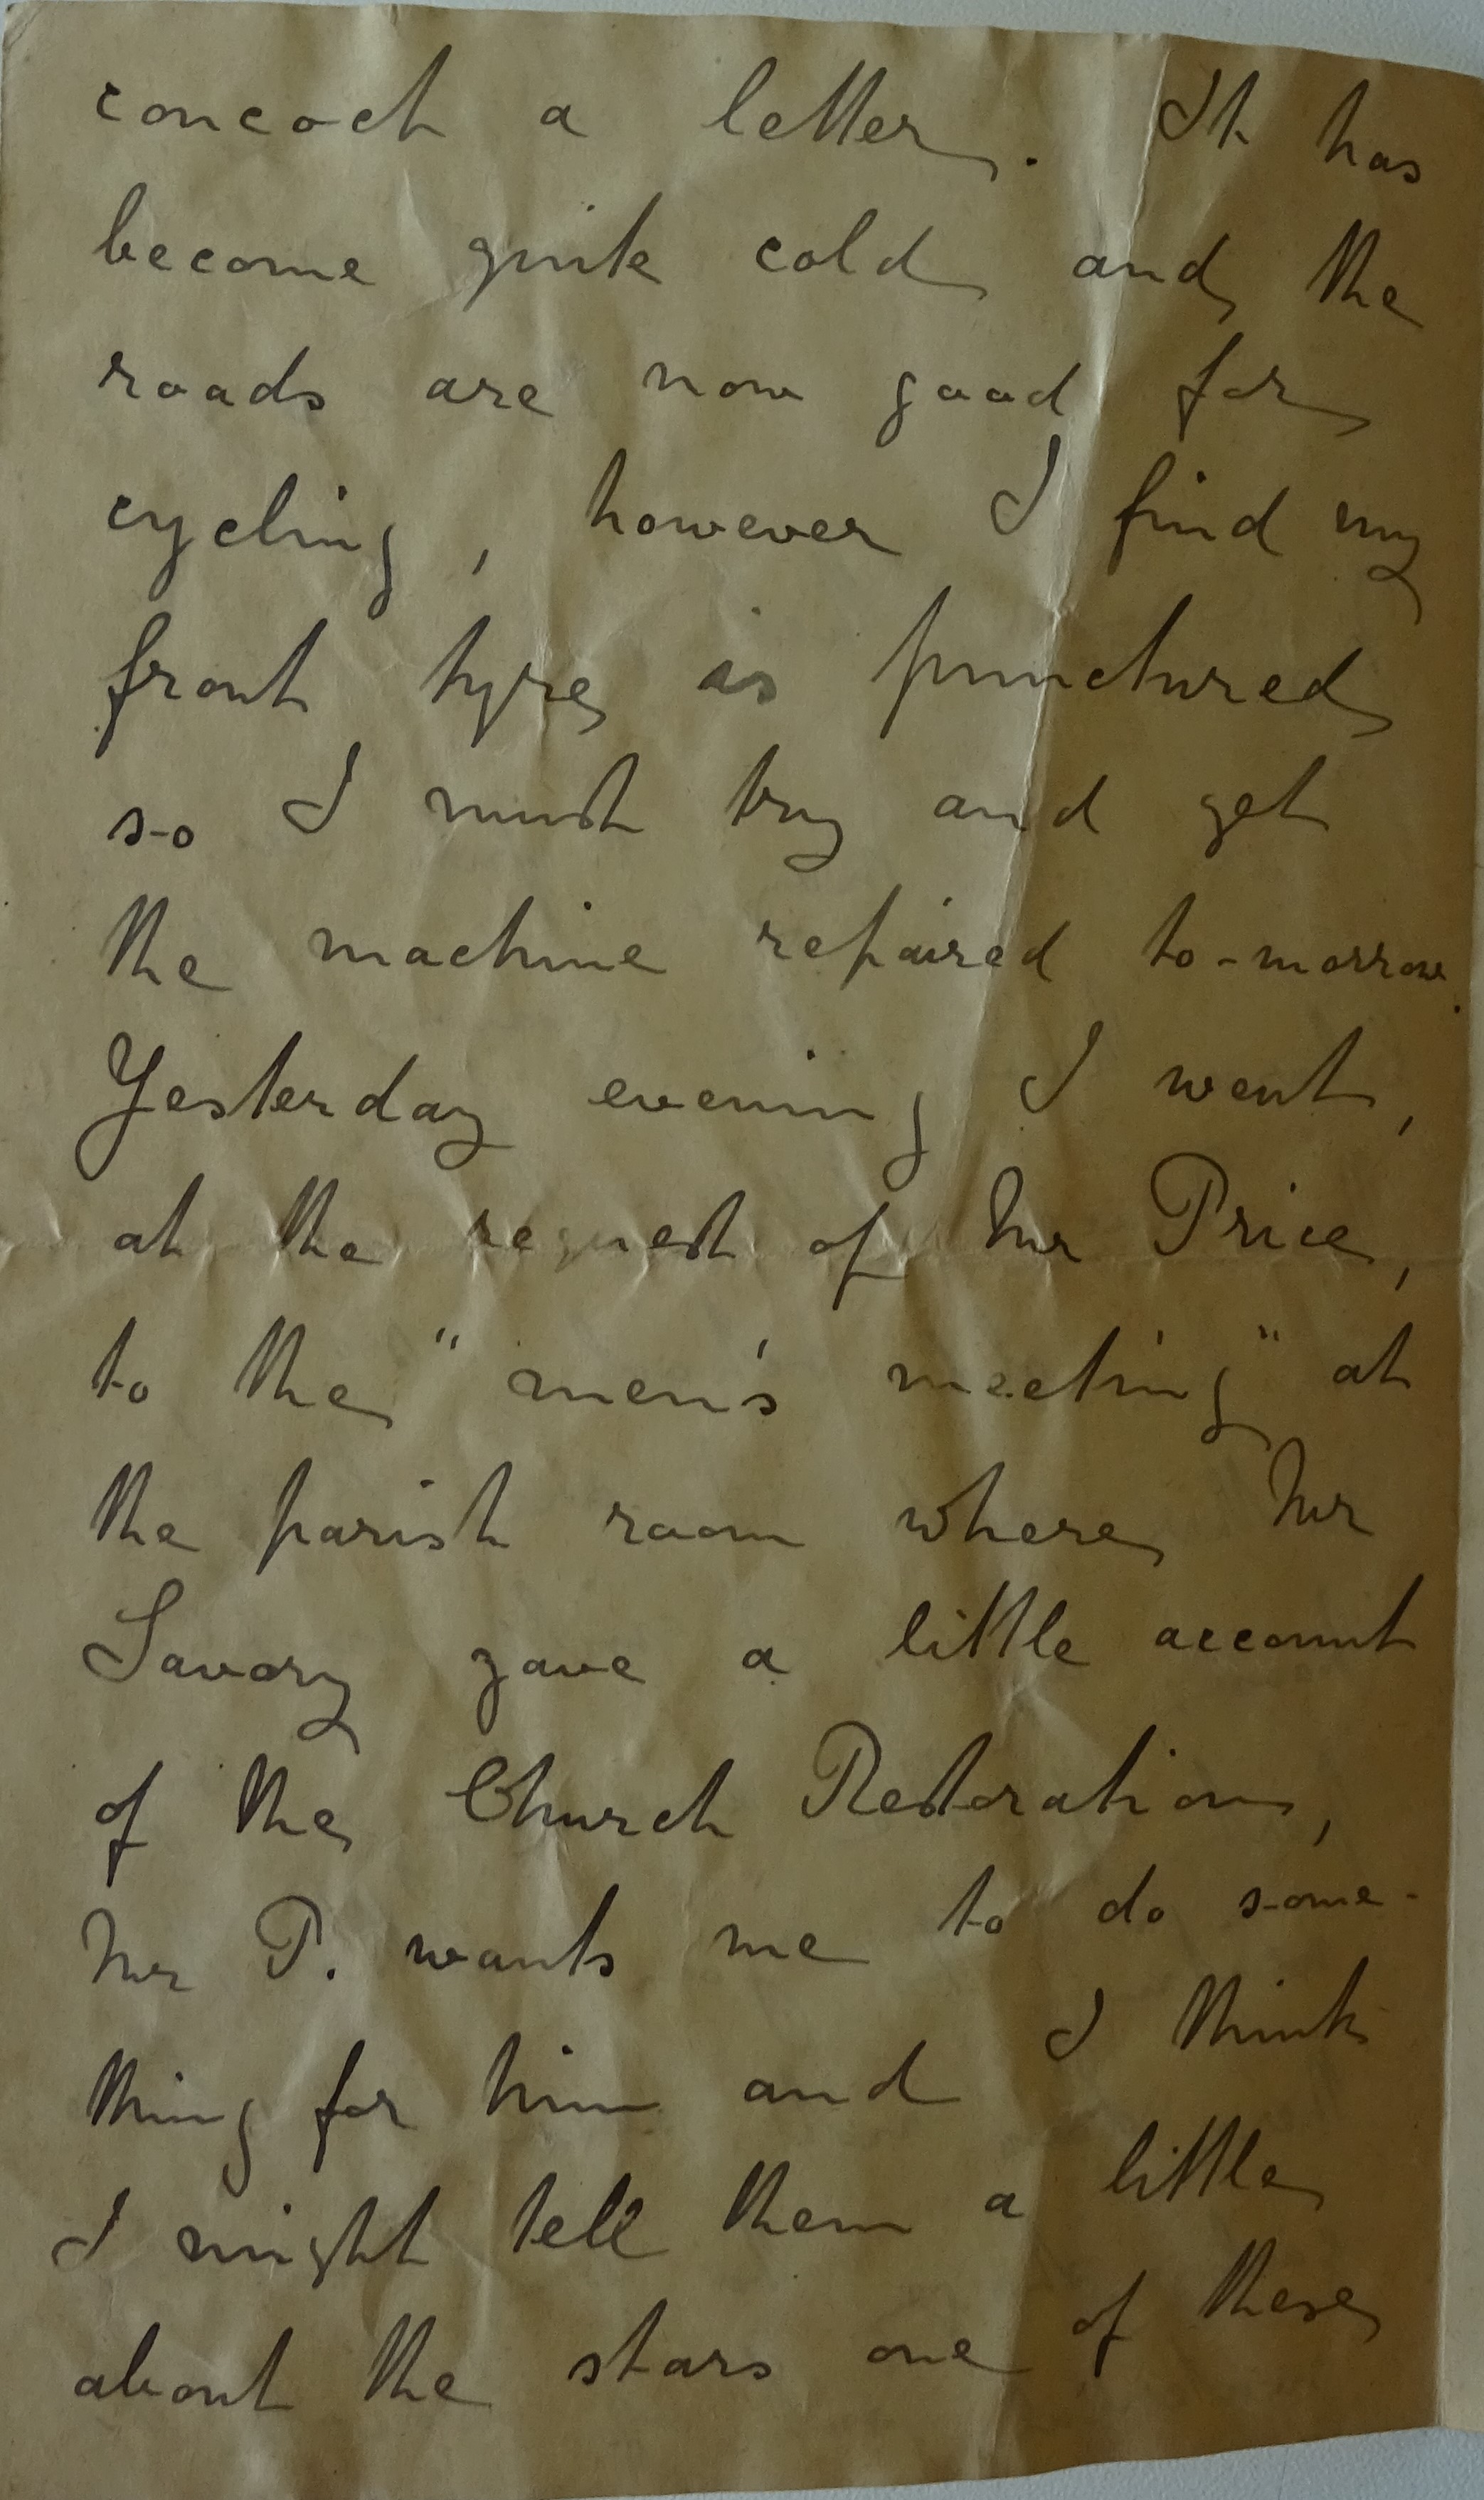 concoct a letter. It has
become quite cold and the
roads are now good for
cycling, however I find my
front tyre is punctured
so I must try and get
the machine repaired to-morrow.
Yesterday evening I went,
at the request of Mr Price,
to the "men's meeting" at
the parish room where Mr
Savory gave a little account
of the Church Restoration,
Mr P. wants me to do some-
thing for him and I think
I might tell them a little
about the stars one of these